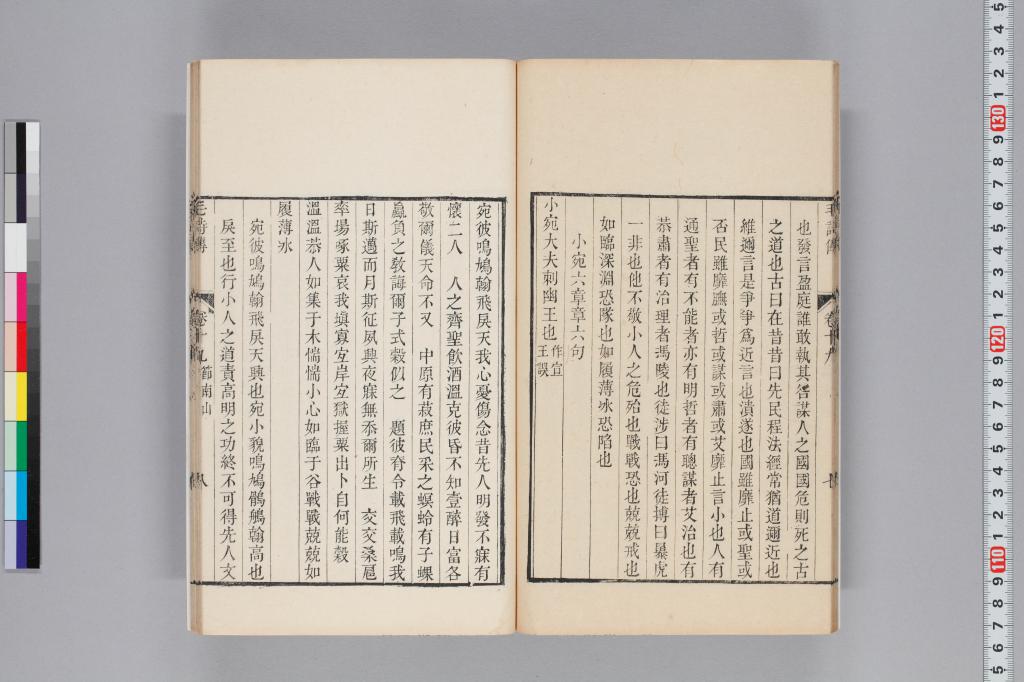 也發言盈庭誰敢執其咎謀人之國國危則死之古
之道也古曰在昔昔曰先民程法經常猶道邇近也
維邇言是爭爭爲近言也潰遂也國雖靡止或聖或
否民雖靡膴或哲或謀或肅或艾靡止言小也人有
通聖者有不能者亦有明哲者有聰謀者艾治也有
恭肅者有治理者馮陵也徒涉曰馮河徒搏曰暴虎
一非也他不敬小人之危殆也戰戰恐也兢兢戒也
如臨深淵恐隊也如履薄冰恐陷也
小宛六章章六句
小宛大夫刺幽王也作宣
王誤
宛彼鳴鳩翰飛戾天我心憂傷念昔先人明發不寐有
懷二人 人之齊聖飮酒溫克彼昏不知壹醉日富各
敬爾儀天命不又 中原有菽庶民采之螟蛉有子蜾
蠃負之敎誨爾子式穀佀之 題彼脊令載飛載鳴我
日斯邁而月斯征夙興夜寐無忝爾所生 交交桑扈
率場啄粟哀我塡寡宜岸宜獄握粟出卜自何能穀
溫溫恭人如集于木惴惴小心如臨于谷戰戰兢兢如
履薄冰
宛彼鳴鳩翰飛戾天興也宛小貌鳴鳩鶻鵃翰高也
戾至也行小人之道責高明之功終不可得先人文
毛詩傳
卷十九 節南山
八